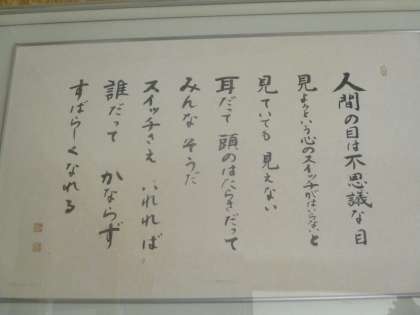 人間の目は不思議な目
見ようという心のスイッチがはいらないと
見ていても 見えない
耳だって 頭のはたらきだって
みんな そうだ
スイッチさえ いれれば
誰だって かならず
すばらしくなれる